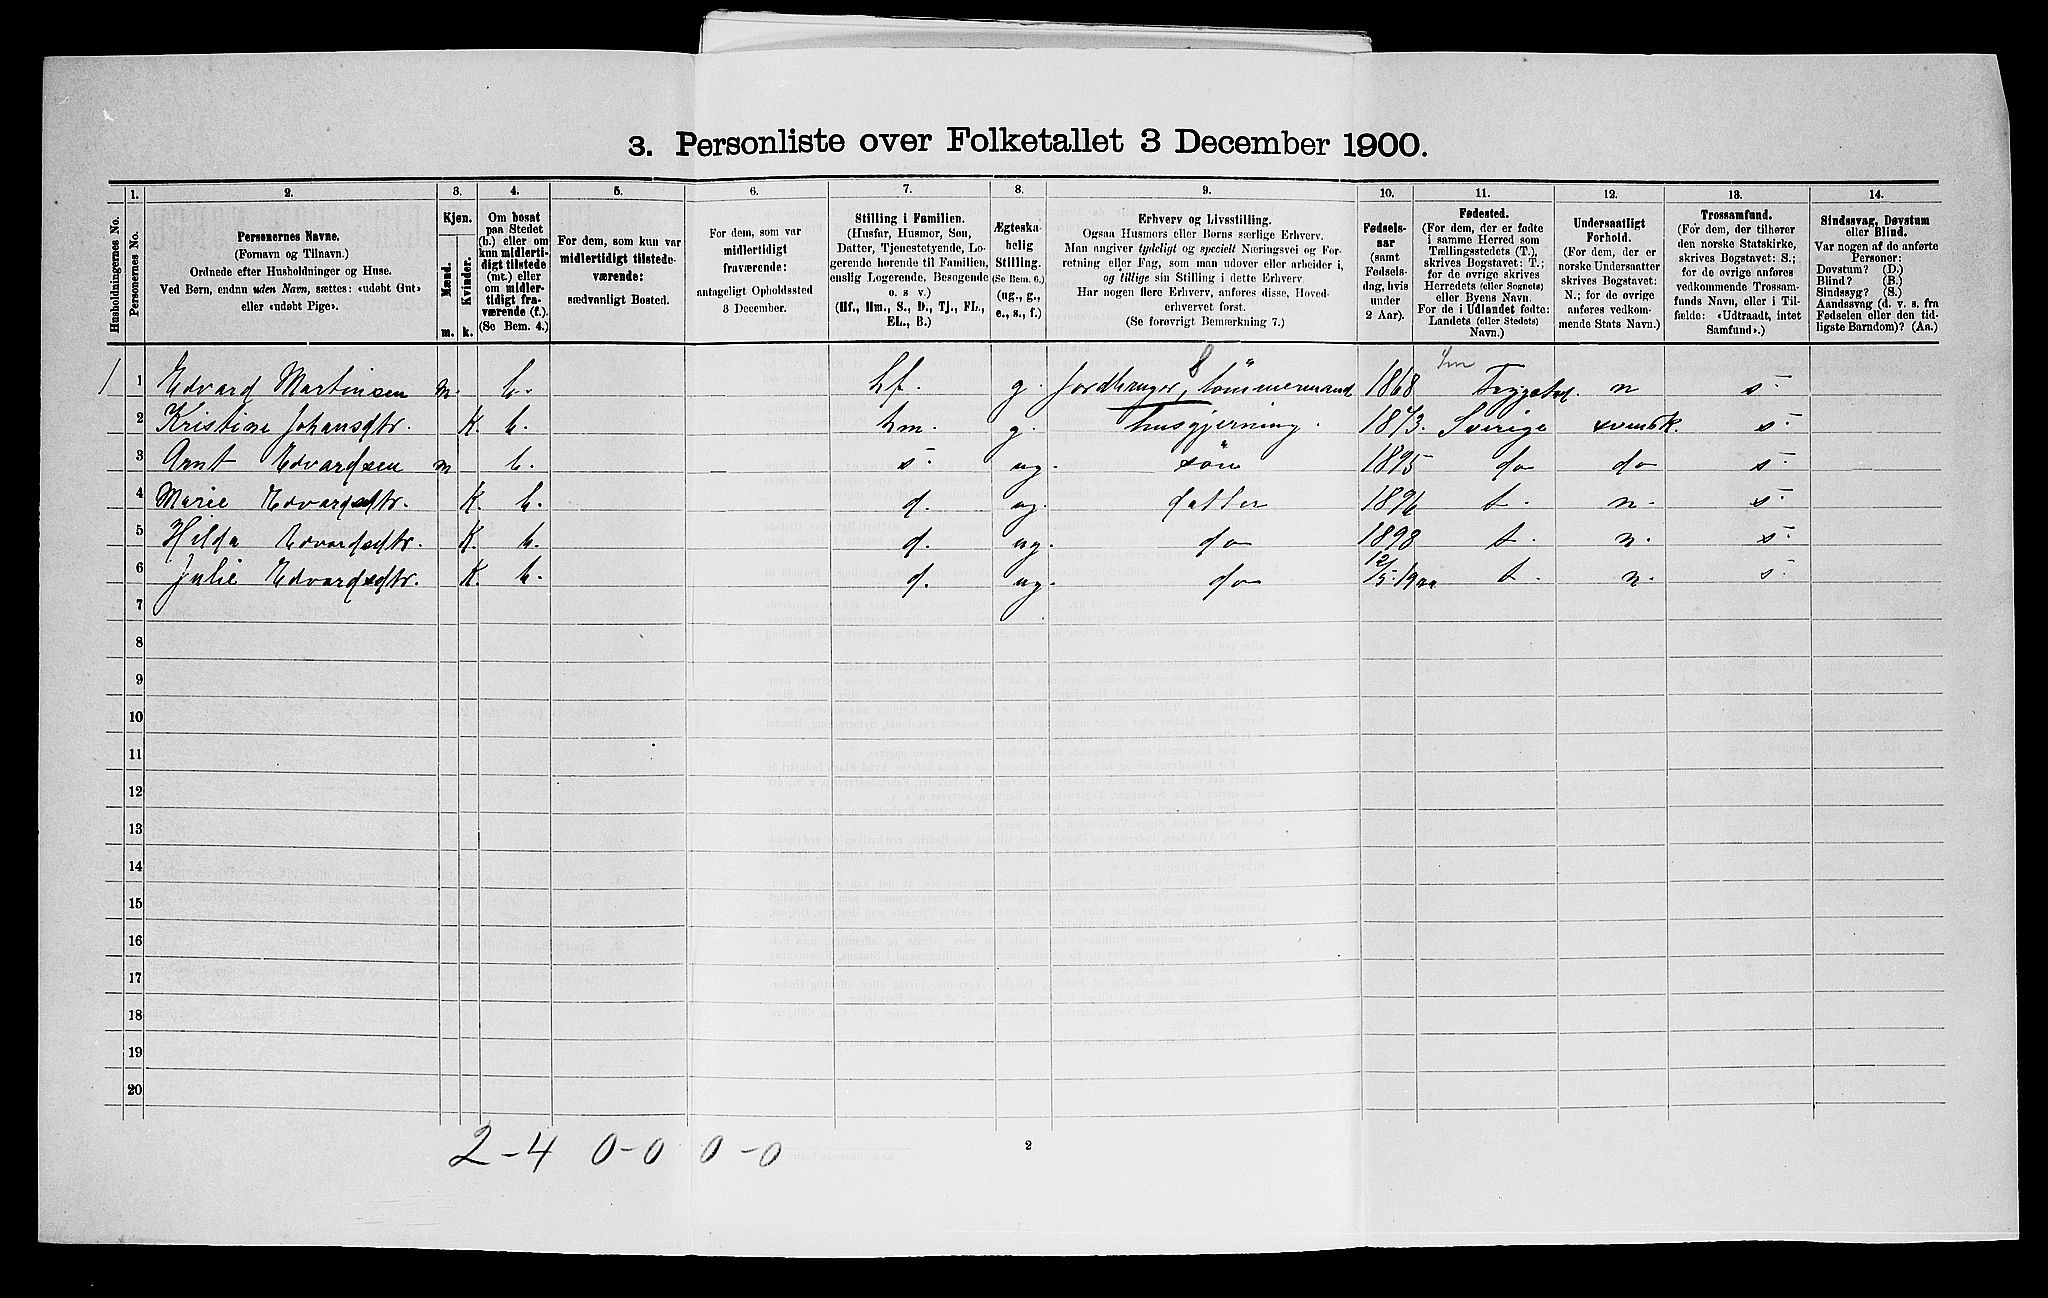 3. Personliste over Folketallet 3 December 1900.
1. 2. 3. 4. 5. 6. 7. 8. 9. 10. 11. 12. 13. 14.
Husholdningernes No.
Personernes No.
Personernes Navne.
(Fornavn og Tilnavn.)
Ordnede efter Husholdninger og Huse.
Ved Børn, endnu uden Navn, sættes: «udøbt Gut»
eller «udøbt Pige».
Kjøn.
Mænd.
Kvinder.
m. k.
Om bosat
paa Stedet
(b.) eller om
kun midlerti-
digt tilstede
(mt.) eller
om midler-
tidigt fra-
værende (f.).
(Se Bem. 4.)
For dem, som kun var
midlertidigt tilstede-
værende:
sædvanligt Bosted.
For dem, som var
midlertidigt
fraværende:
antageligt Opholdssted
3 December.
Stilling i Familien.
(Husfar, Husmor, Søn,
Datter, Tjenestetyende, Lo-
gerende hørende til Familien,
enslig Logerende, Besøgende
o. s v.)
(Hf., Hm., S., D., Tj., FL.,
EL., B.)
Ægteska-
belig
Stilling.
(Se Bem. 6.)
(ug., g.,
e., s., f.)
Erhverv og Livsstilling.
Ogsaa Husmors eller Børns særlige Erhverv.
Man angiver tydeligt og specielt Næringsvei og For-
retning eller Fag, som man udover eller arbeider i,
og tillige sin Stilling i dette Erhverv.
Har nogen flere Erhverv, anføres disse, Hoved-
erhvervet først.
(Se forøvrigt Bemærkning 7.)
Fødsels-
aar
(samt
Fødsels-
dag, hvis
under
2 Aar).
Fødested.
(For dem, der er fødte
i samme Herred som
Tællingsstedets (T.),
skrives Bogstavet: T.;
for de øvrige skrives
Herredets (eller Sognets)
eller Byens Navn.
For de i Udlandet fødte:
Landets (eller Stedets)
Navn.)
Undersaatligt
Forhold.
(For dem, der er
norske Undersaatter
skrives Bogstavet:
N.; for de øvrige
anføres vedkom-
mende Stats Navn.)
Trossamfund.
(For dem, der tilhører
den norske Statskirke,
skrives Bogstavet: S.;
for de øvrige anføres
vedkommende Trossam-
funds Navn, eller i Til-
fælde: «Udtraadt, intet
Samfund».)
Sindssvag, Døvstum
eller Blind.
Var nogen af de anførte
Personer:
Døvstum? (D.)
Blind? (B.)
Sindssyg? (S.)
Aandssvag (d. v. s. fra
Fødselen eller den tid-
ligste Barndom)? (Aa.)
1 1 Edvard Martinsen m. b. hf. g. Jordbruger, tömmermand 1868 Trygstad. n s.
2 Kristine Johansdtr. K. b. hm. g. husgjerning. 1873. Sverige svensk. s.
3 Arnt Edvardsen m b. s. ug. sön 1895 do do s.
4 Marie Edvardsdtr. K. b. d. ug. datter 1896 t. n. s.
5 Hilda Edvardsdtr. K. b. d. ug. do 1898 t. n. s.
6 Julie Edvardsdtr. K. b. d. ug. do 12/5 1900 t. n. s.
7
8
9
10
11
12
13
14
15
16
17
18
19
20
2-4 0-0 0-0
2